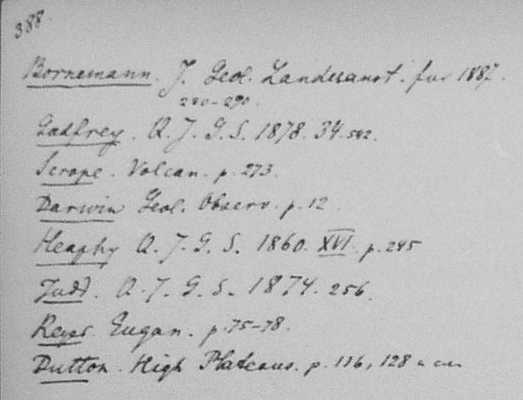 388.
Bornemann. J. Geol. Landesanst. für 1887.
280-290.
Godfrey. Q. J. G. S. 1878. 34. 542.
Scrope. Volcan. p. 273.
Darwin Geol. Observ. p. 12
Heaphy Q. J. G. S. 1860. XVI. p. 245
Judd. Q. J. G. S. 1874. 256.
Reyer. Eugan. p. 75-78.
Dutton. High Plateaus. p. 116, 128